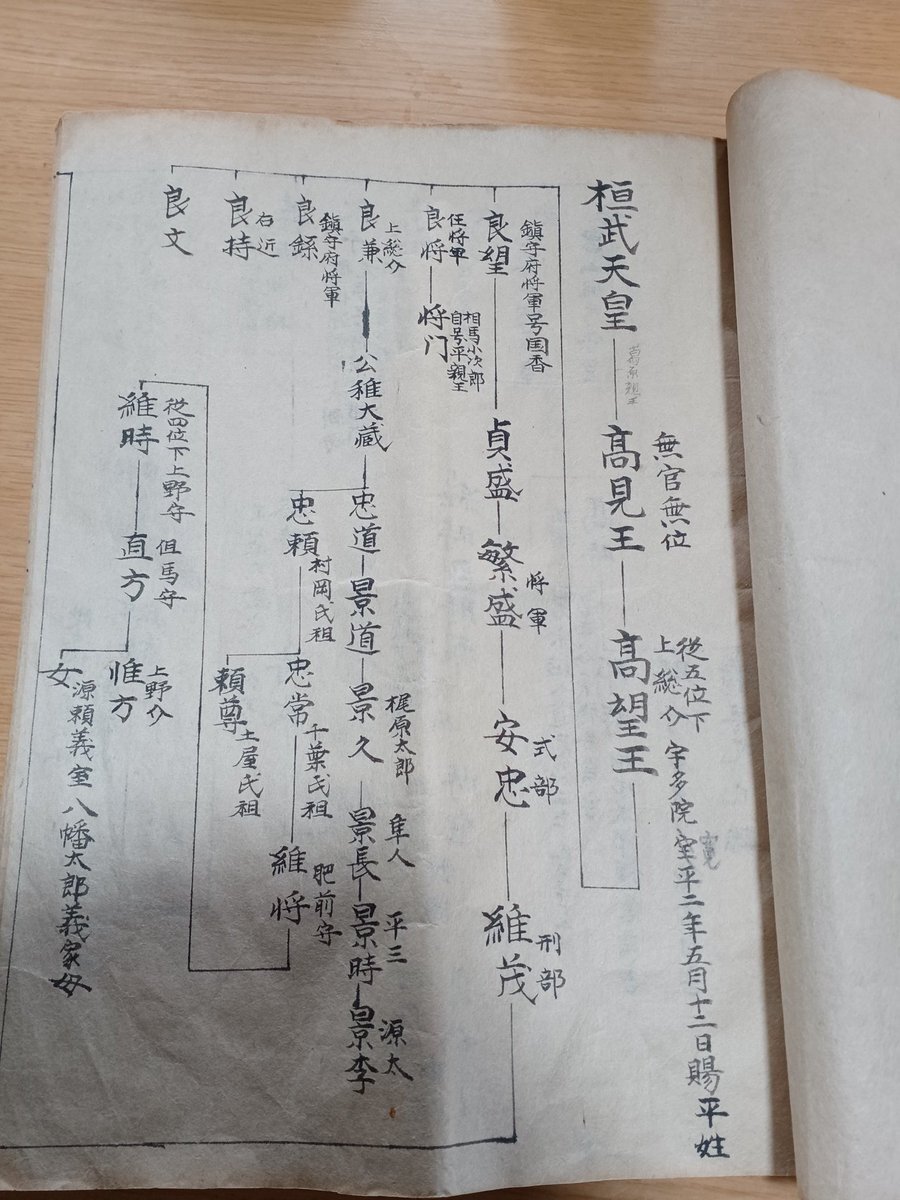 桓武天皇
葛原親王
高見王
無官無位
高望王
従五位下
上総介
宇多院
寛
平二年五月十二日賜平姓
良望
鎮守府将軍号国香
貞盛
繁盛
将軍
安忠
式部
維茂
刑部
良将
任将軍
将门
相馬小次郎
自号平親王
良兼
上総介
公稚大蔵
忠道
景道
景久
梶原太郎
景長
隼人
景時
平三
景李
源太
忠頼
村岡氏祖
忠常
千葉氏祖
維将
肥前守
頼尊
土屋氏祖
良繇
鎮守府将軍
良持
右近
良文
維時
従四位下上野守
直方
但馬守
惟方
上野介
女
源頼義室八幡太郎義家母